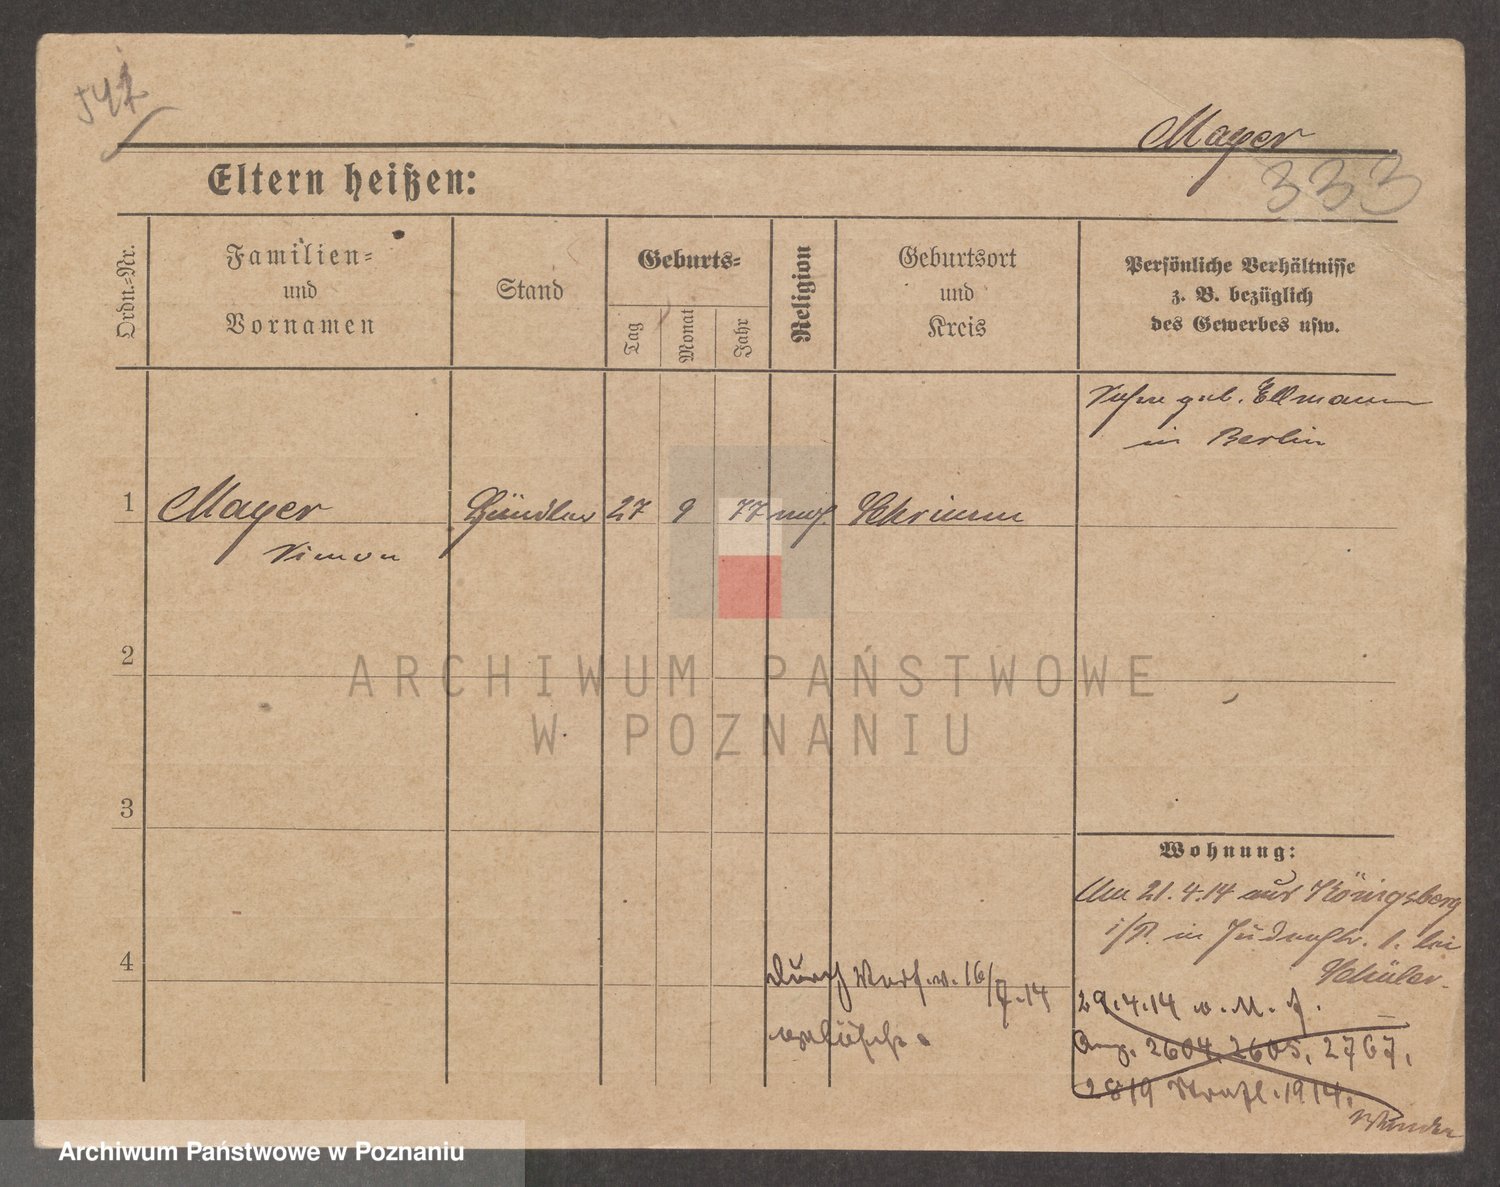 547
Mayer
333
Eltern heißen:
Ordn.-Nr.
Familien-
und
Vornamen
Stand
Geburts-
Tag
Monat
Jahr
Religion
Geburtsort
und
Kreis
Persönliche Verhältnisse
z. B. bezüglich
des Gewerbes usw.
geb. Ellmann
in Berlin
1 Mayer Händler 27 9 77 mos. Schrimm
Simon
2
ARCHIWUM PAŃSTWOWE
W POZNANIU
3
Wohnung:
Am 21.4.14 aus Königsberg
i/P. in Judenstr. 1. bei
Schüler.
4
durch Verf. v. 16/7.14
29.4.14 v. M. J.
Anz. 2604, 2605, 2767,
2819 Strafl. 1914.
Archiwum Państwowe w Poznaniu